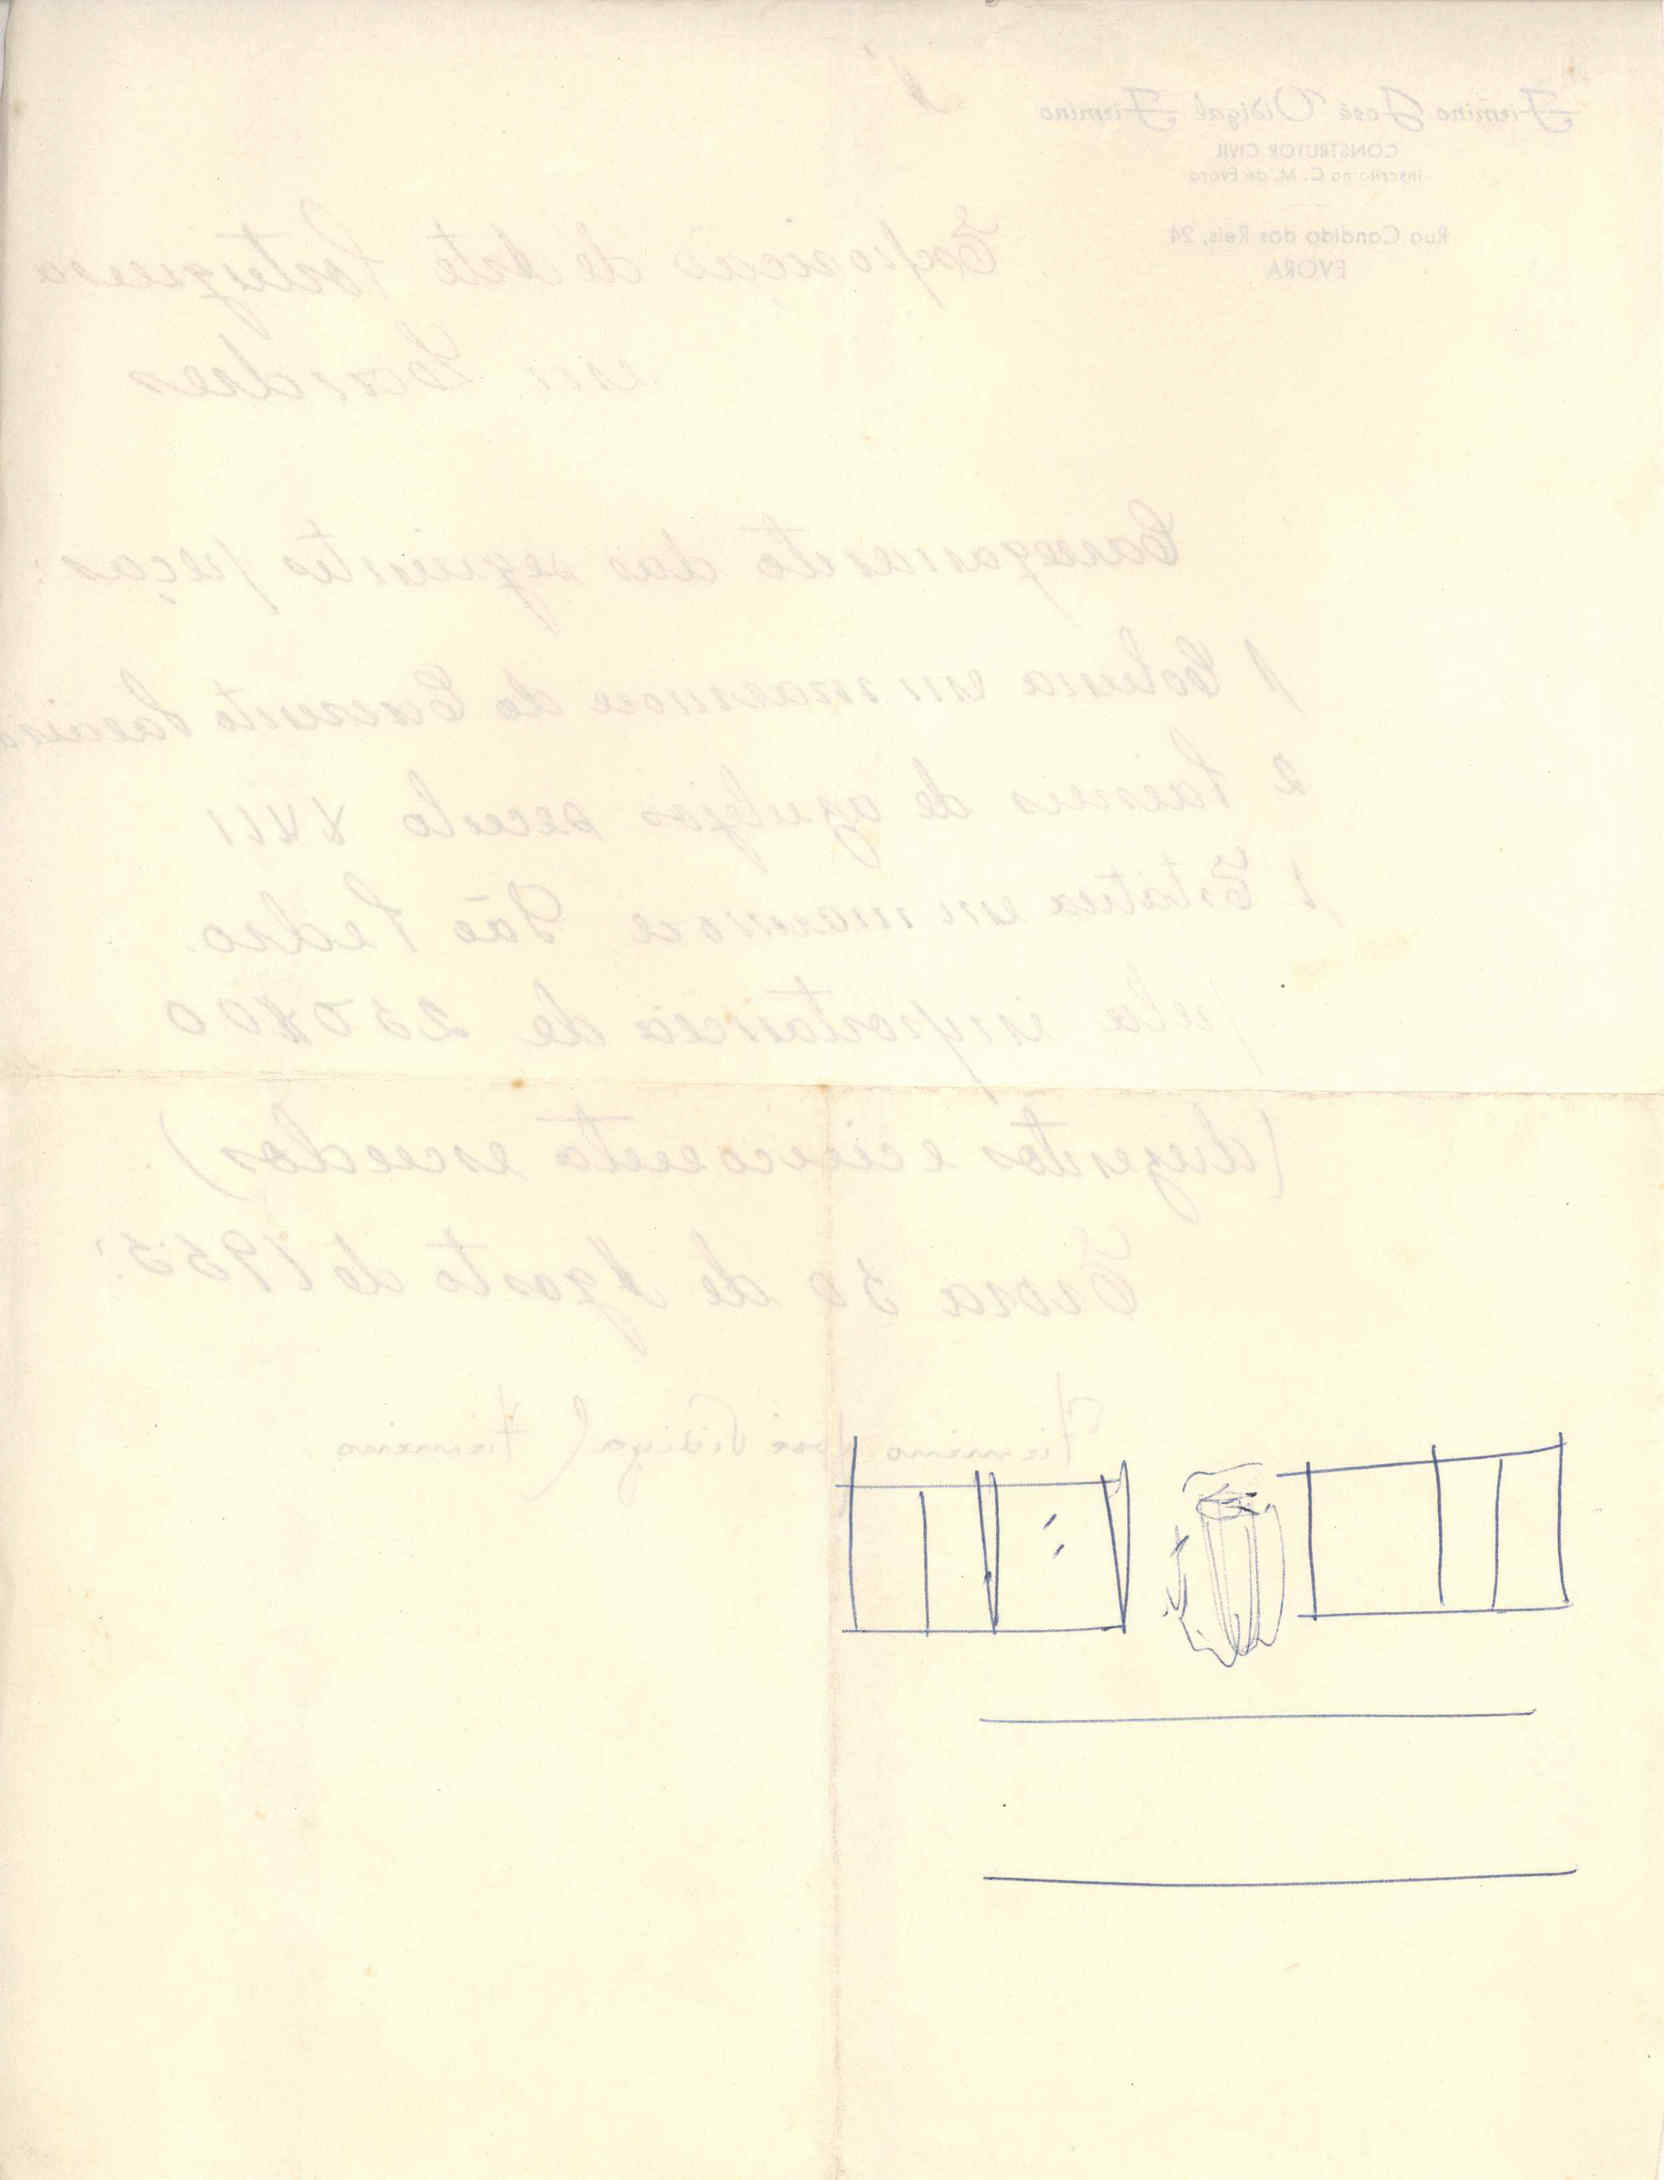 Firmino José Vidigal Firmino
CONSTRUTOR CIVIL
Inscrito na C. M. de Evora
Rua Candido dos Reis, 24
EVORA
Exposição de Arte Portuguesa
em Londres
Carregamento das seguintes peças:
1 Coluna em marmore do Convento Paraiso
2 Paineis de azulejos seculo XVII
1 Estátua em marmore São Pedro
pela importancia de 250$00
(duzentos e cincoenta escudos)
Evora 30 de Agosto de 1955.
Firmino José Vidigal Firmino